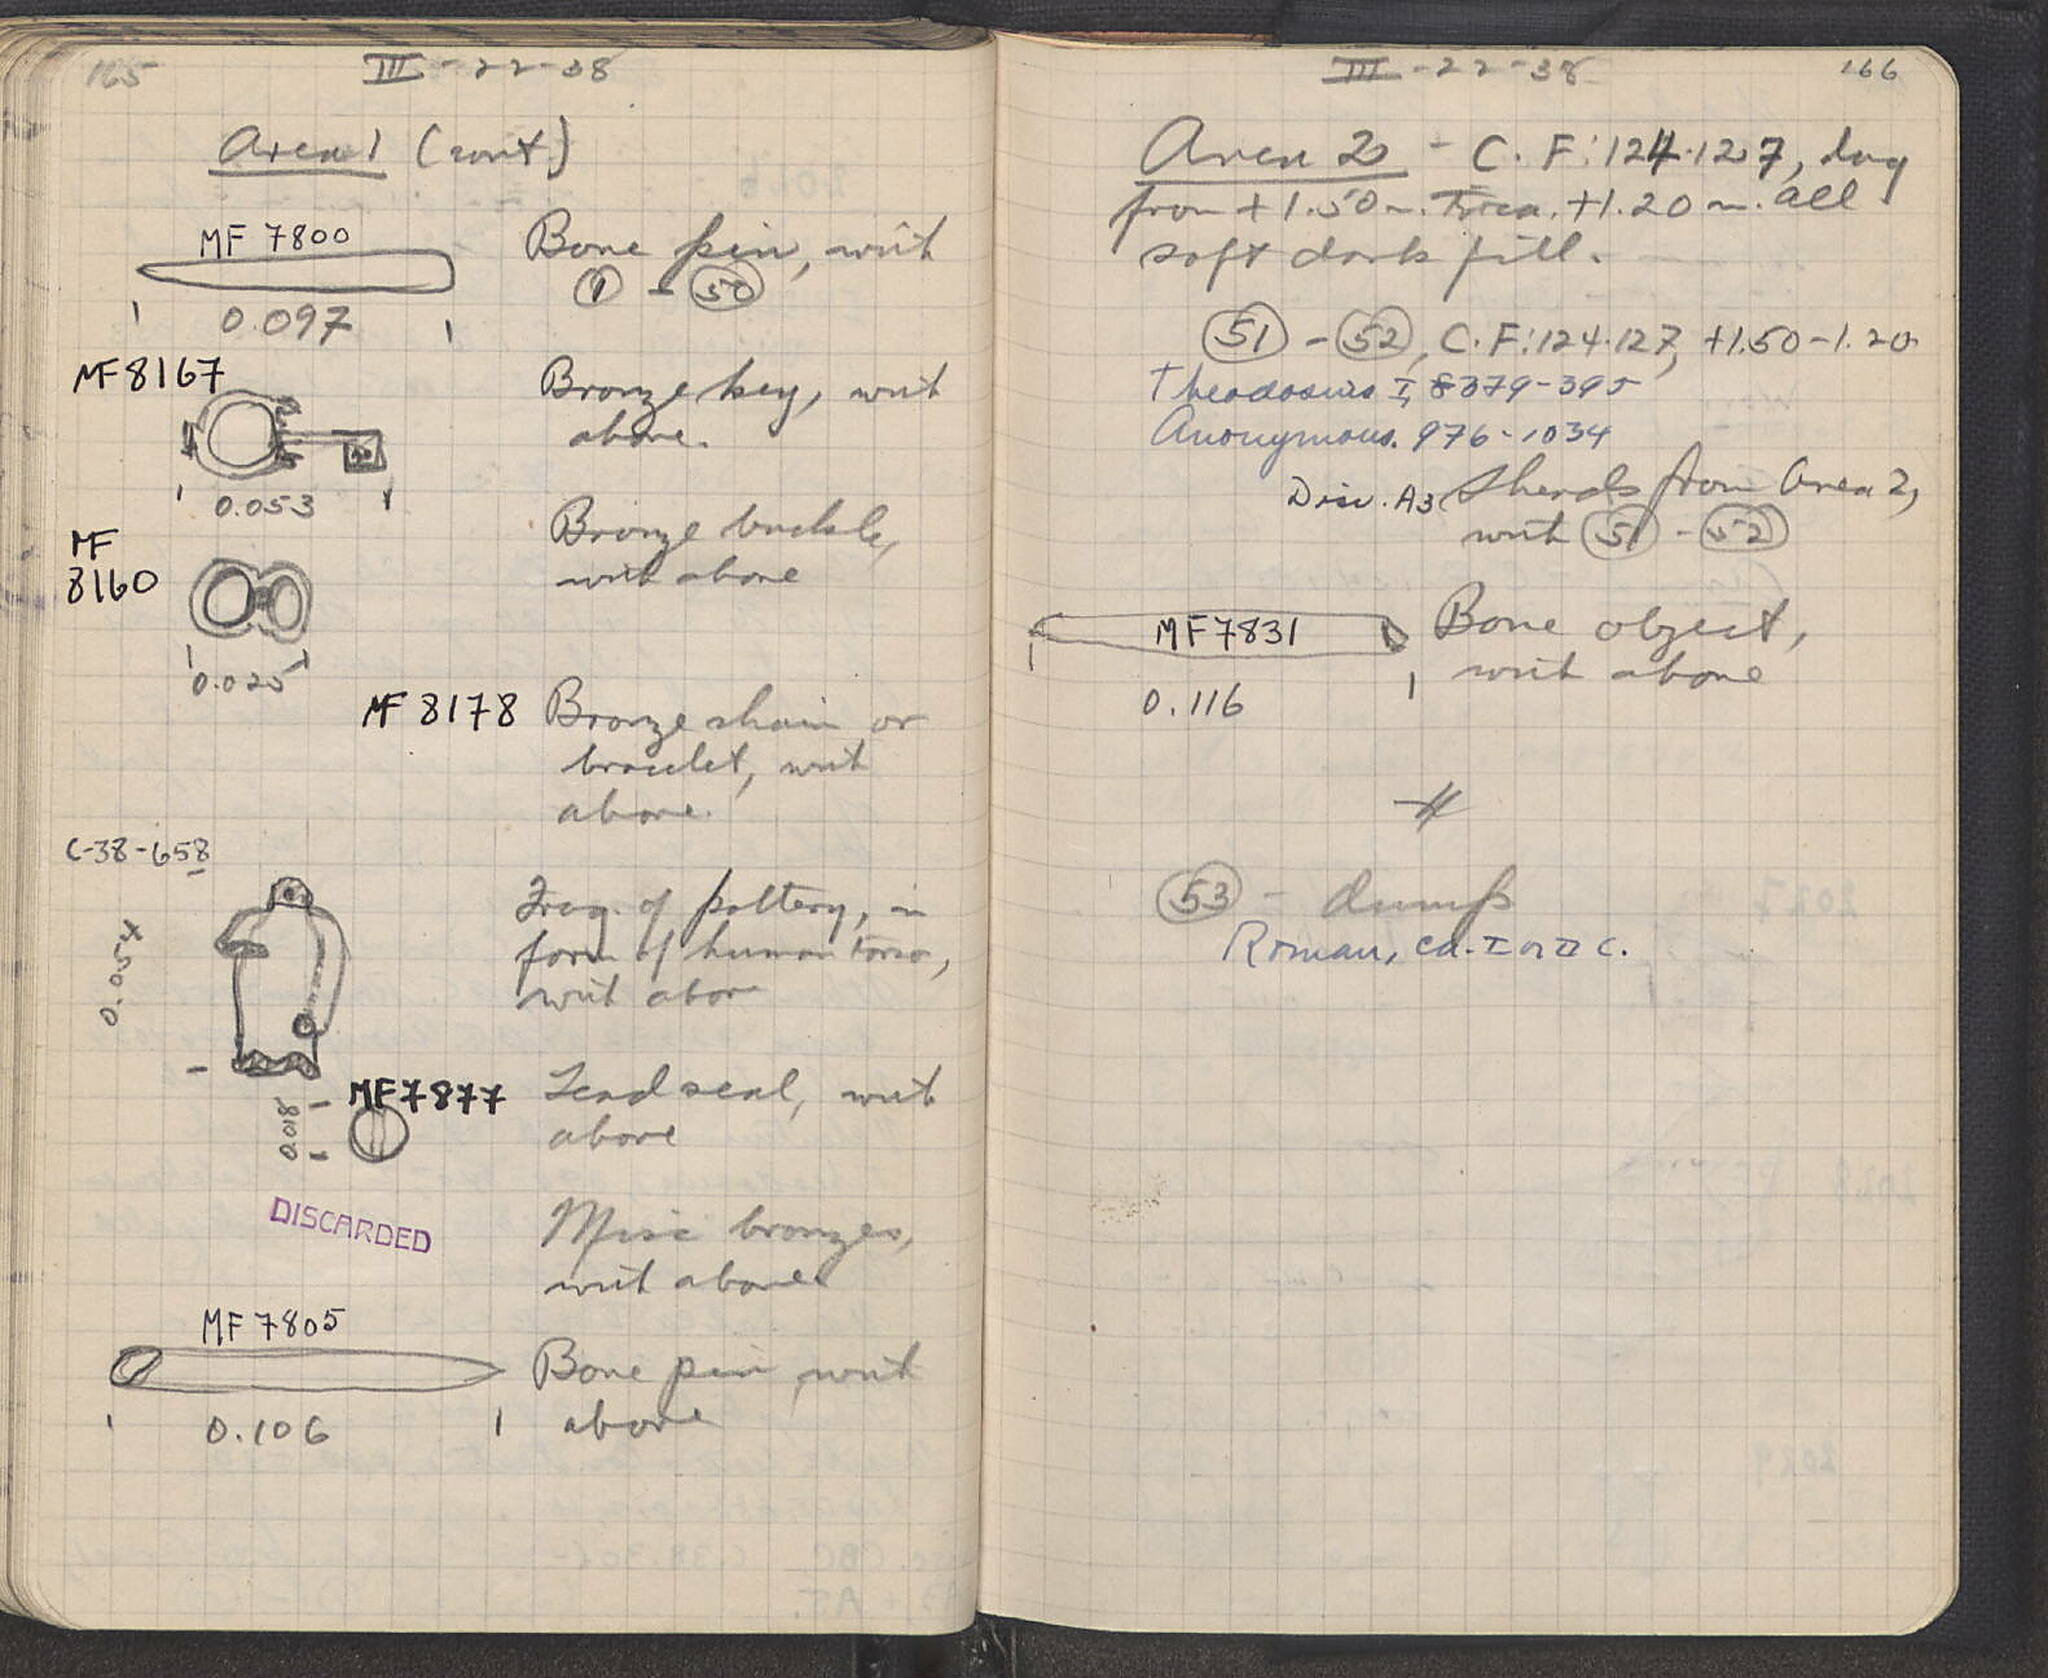 165
III-22-38
Area 1 (cont)
MF 7800
Bone pin, with
1 - 50
0.097
MF 8167
Bronze key, with
above.
0.053
MF
8160
Bronze buckle,
with above
0.025
MF 8178
Bronze chain or
bracelet, with
above.
C-38-658
0.054
Frag. of pottery, in
form of human torso,
with above
MF7877
0.018
Lead seal, with
above
DISCARDED
Misc bronzes,
with above
MF 7805
Bone pin, with
above
0.106
III-22-38
166
Area 2 - C. F:124.127, dug
from +1.50 m. to ca. +1.20 m. all
soft dark fill.
51 - 52, C.F:124.127, +1.50-1.20
Theodosius I, 379-395
Anonymous. 976-1034
Disc. A3 Sherds from Area 2,
with 51 - 52
MF7831
Bone object,
with above
0.116
53 - dump
Roman, ca. I or II C.